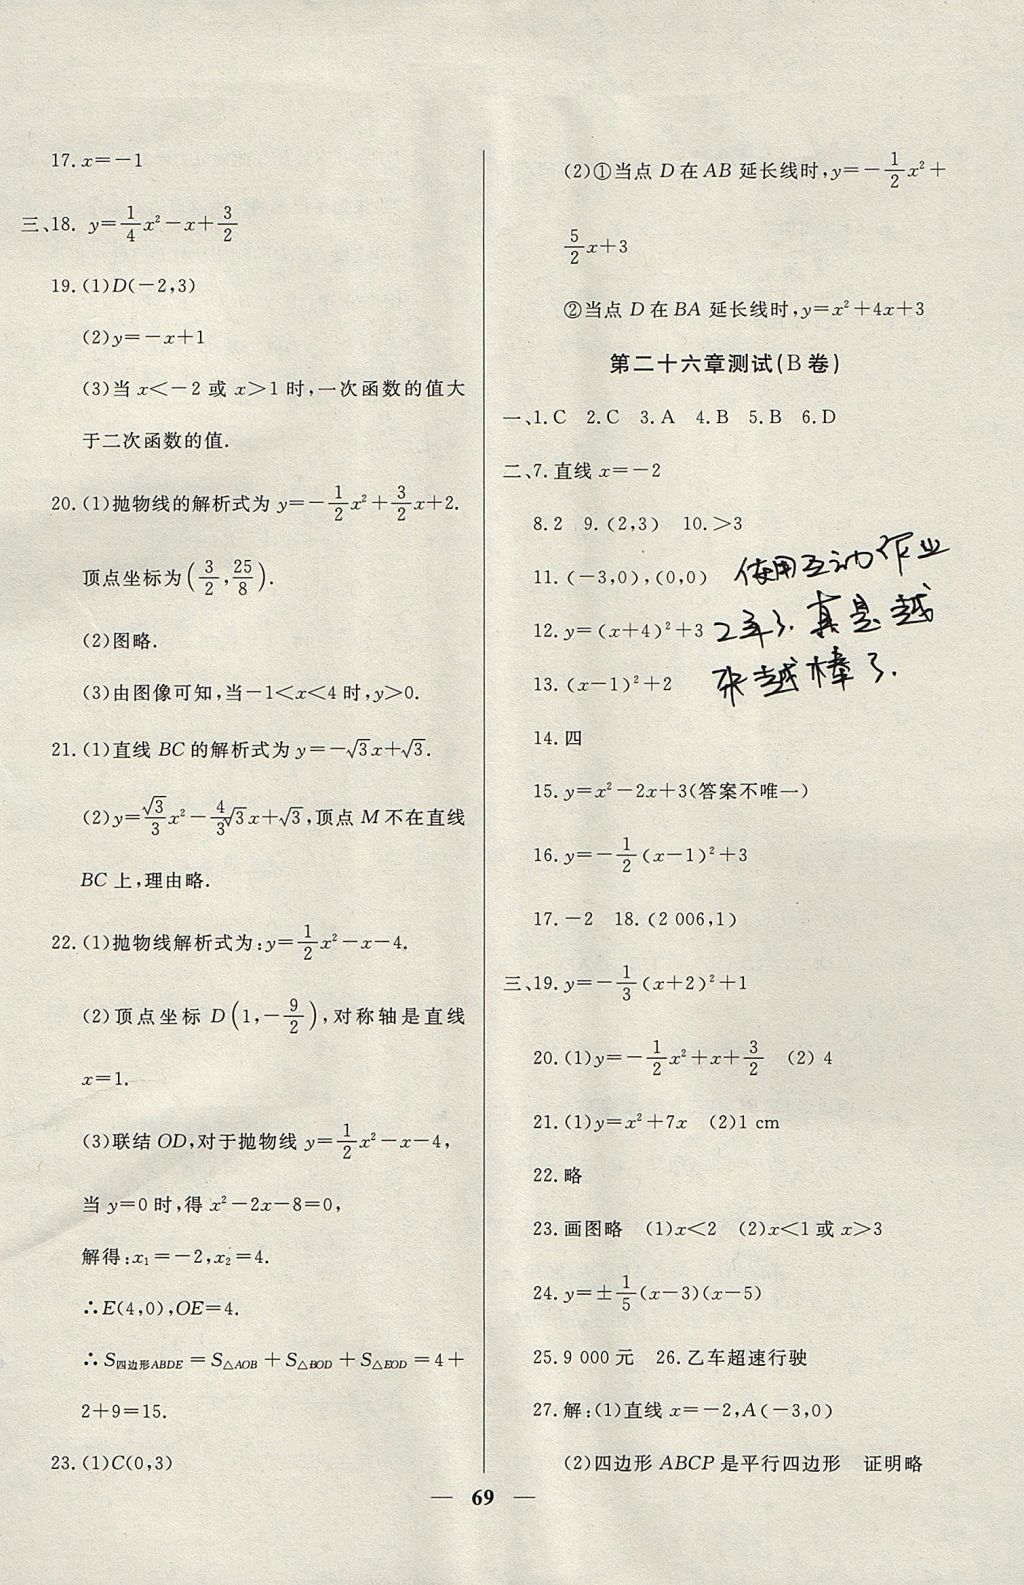 17. x=－1
三、18. y=1/4x²－x+3/2
19. (1)D(－2,3)
(2)y=－x+1
(3)当 x<－2 或 x>1 时,一次函数的值大
于二次函数的值.
20. (1)抛物线的解析式为 y=－1/2x²+3/2x+2.
顶点坐标为(3/2,25/8).
(2)图略.
(3)由图像可知,当－1<x<4 时,y>0.
21. (1)直线 BC 的解析式为 y=－√3x+√3.
(2)y=√3/3x²－4/3√3x+√3,顶点 M 不在直线
BC 上,理由略.
22. (1)抛物线解析式为:y=1/2x²－x－4.
(2)顶点坐标 D(1,－9/2),对称轴是直线
x=1.
(3)联结 OD,对于抛物线 y=1/2x²－x－4,
当 y=0 时,得 x²－2x－8=0,
解得:x₁=－2,x₂=4.
∴E(4,0),OE=4.
∴S四边形ABDE=S△AOB+S△BOD+S△EOD=4+
2+9=15.
23. (1)C(0,3)
(2)①当点 D 在 AB 延长线时,y=－1/2x²+
5/2x+3
②当点 D 在 BA 延长线时,y=x²+4x+3
第二十六章测试(B 卷)
一、1. C 2. C 3. A 4. B 5. B 6. D
二、7. 直线 x=－2
8. 2 9. (2,3) 10. >3
11. (－3,0),(0,0)
使用互动作业
12. y=(x+4)²+3
2年了.真是越
13. (x－1)²+2
来越棒了.
14. 四
15. y=x²－2x+3(答案不唯一)
16. y=－1/2(x－1)²+3
17. －2 18. (2 006,1)
三、19. y=－1/3(x+2)²+1
20. (1)y=－1/2x²+x+3/2 (2) 4
21. (1)y=x²+7x (2)1 cm
22. 略
23. 画图略 (1)x<2 (2)x<1 或 x>3
24. y=±1/5(x－3)(x－5)
25. 9 000 元 26. 乙车超速行驶
27. 解:(1)直线 x=－2,A(－3,0)
(2)四边形 ABCP 是平行四边形 证明略
— 69 —